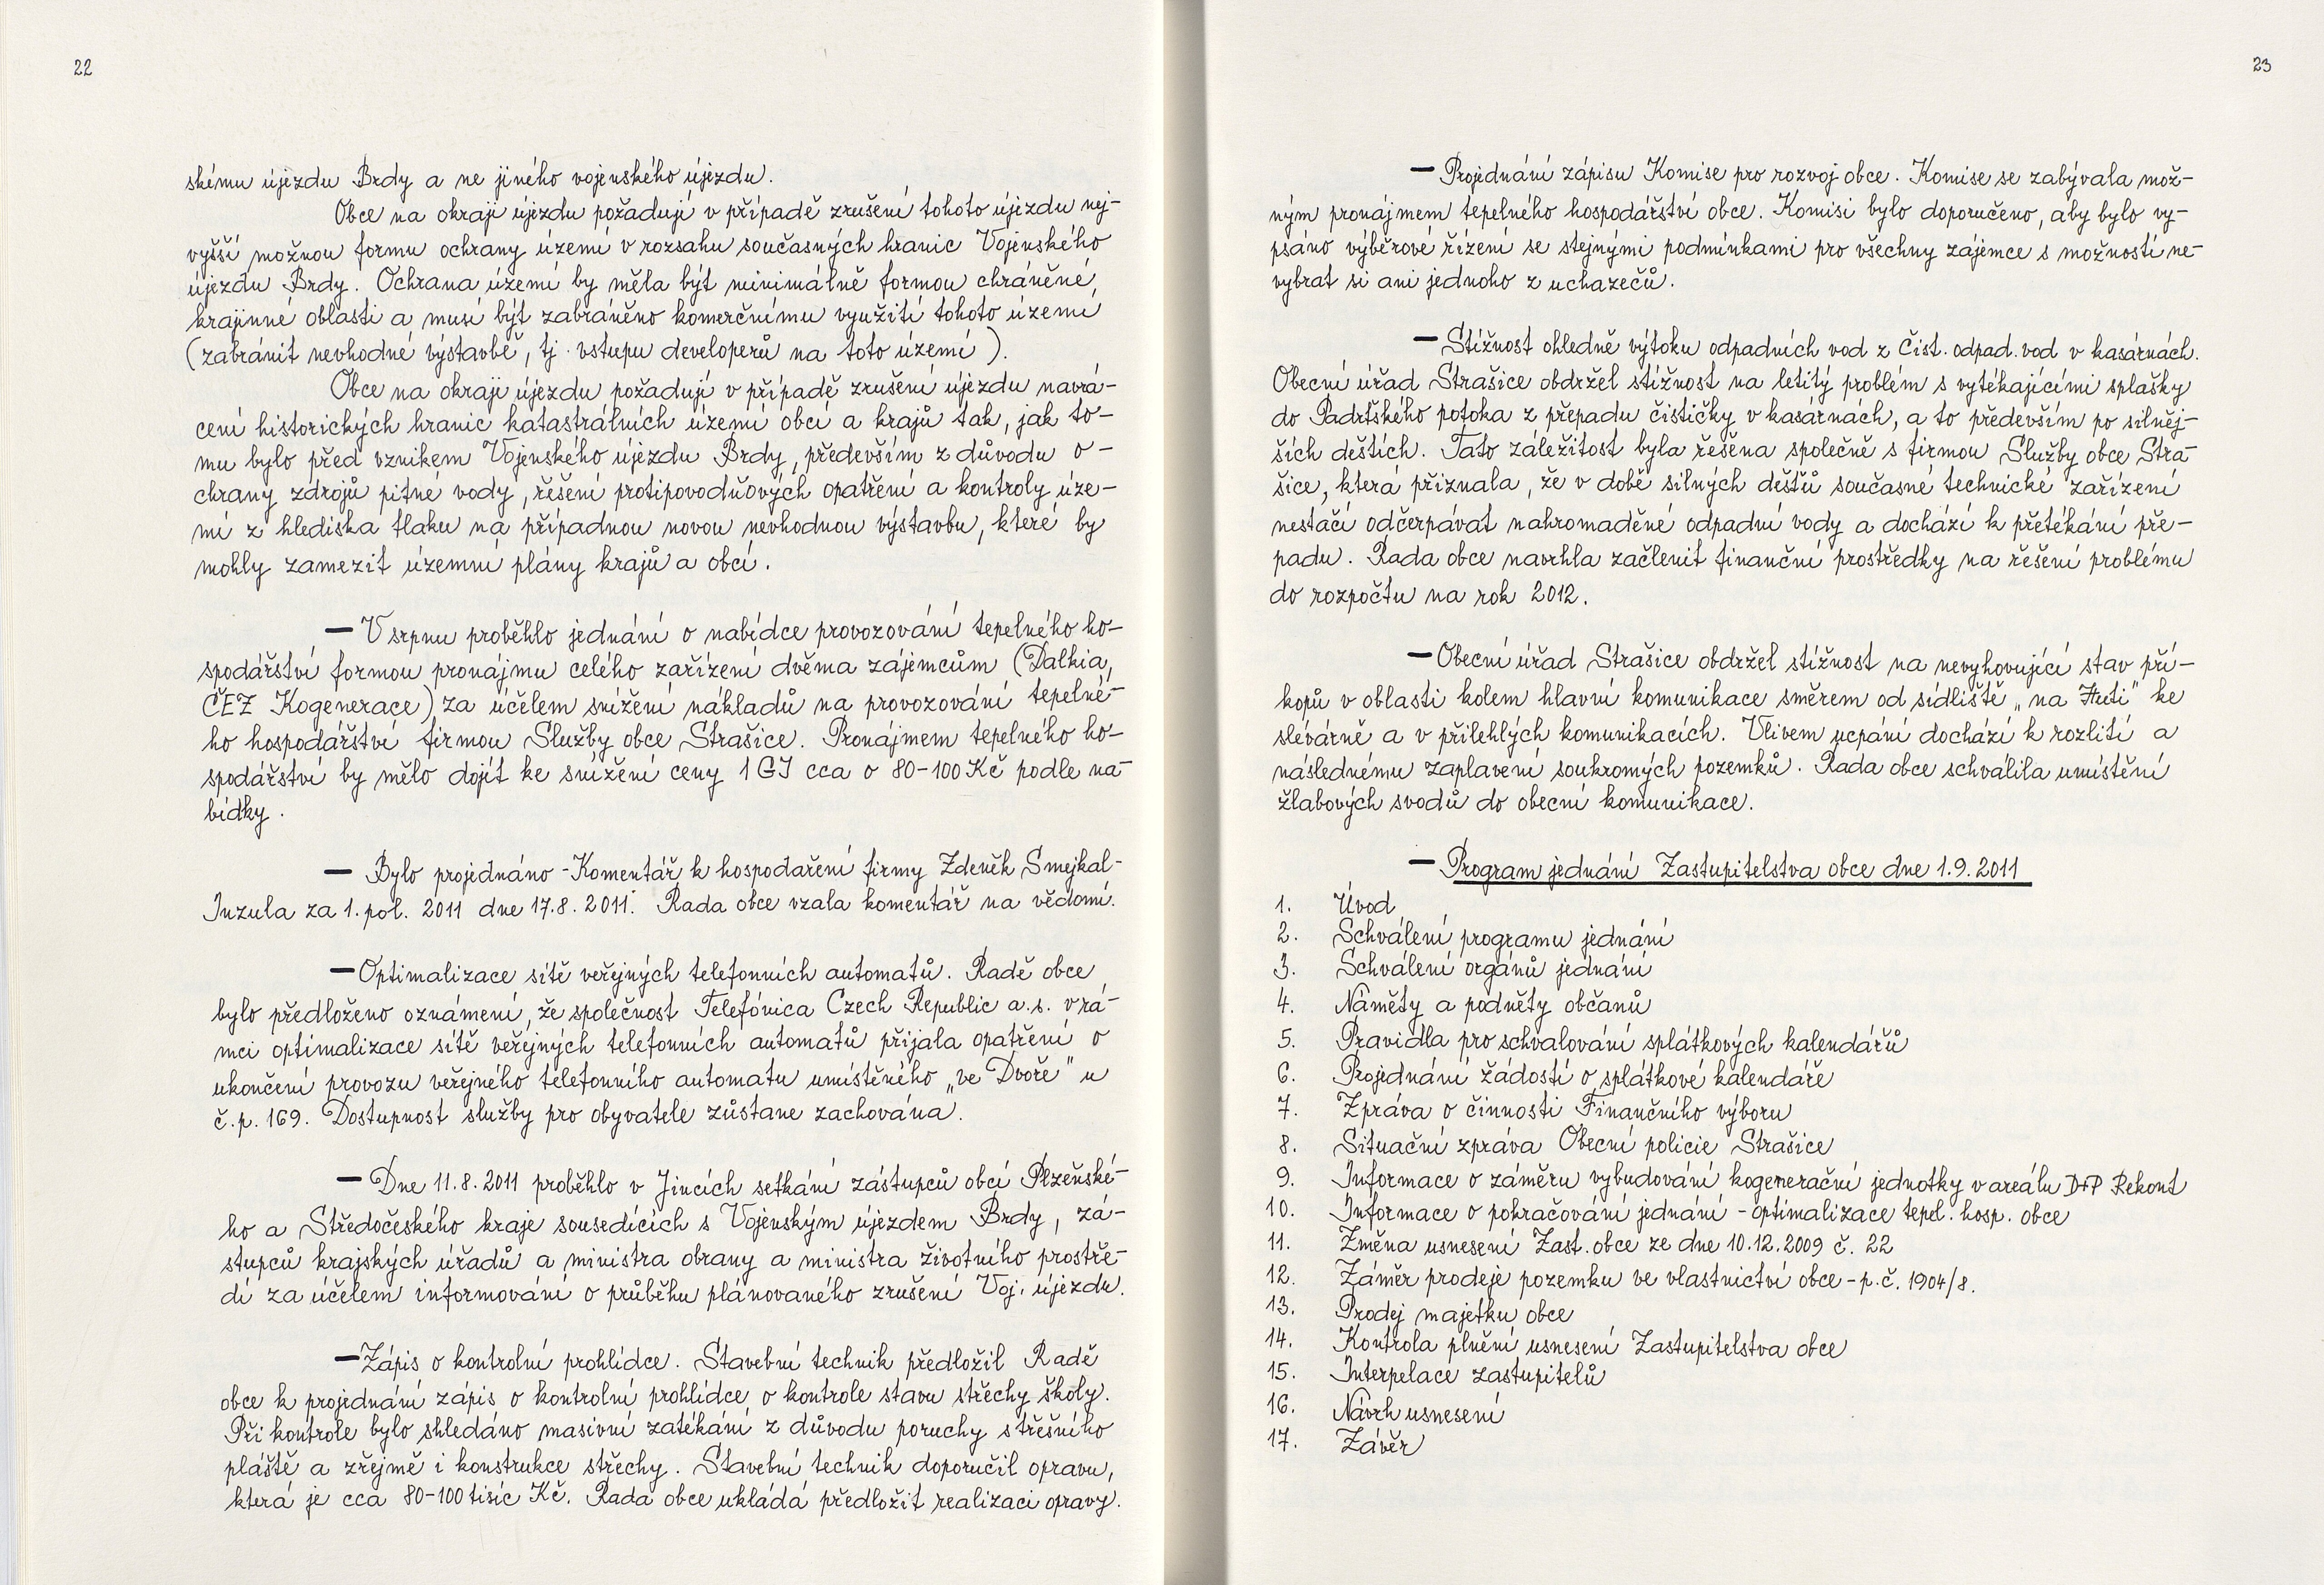 22
skému újezdu Brdy a ne jiného vojenského újezdu.
Obce na okraji újezdu požadují v případě zrušení tohoto újezdu nej-
vyšší možnou formu ochrany území v rozsahu současných hranic Vojenského
újezdu Brdy. Ochrana území by měla být minimálně formou chráněné
krajinné oblasti a musí být zabráněno komerčnímu využití tohoto území
(zabránit nevhodné výstavbě, tj. vstupu developerů na toto území).
Obce na okraji újezdu požadují v případě zrušení újezdu navrá-
cení historických hranic katastrálních území obcí a krajů tak, jak to-
mu bylo před vznikem Vojenského újezdu Brdy, především z důvodu o-
chrany zdrojů pitné vody, řešení protipovodňových opatření a kontroly úze-
mí z hlediska tlaku na případnou novou nevhodnou výstavbu, které by
mohly zamezit územní plány krajů a obcí.
— V srpnu proběhlo jednání o nabídce provozování tepelného ho-
spodářství formou pronájmu celého zařízení dvěma zájemcům (Dalkia,
ČEZ Kogenerace) za účelem snížení nákladů na provozování tepelné-
ho hospodářství firmou Služby obce Strašice. Pronájmem tepelného ho-
spodářství by mělo dojít ke snížení ceny 1 GJ cca o 80-100 Kč podle na-
bídky.
— Bylo projednáno - Komentář k hospodaření firmy Zdeněk Smejkal-
Inzula za 1. pol. 2011 dne 17.8.2011. Rada obce vzala komentář na vědomí.
— Optimalizace sítě veřejných telefonních automatů. Radě obce
bylo předloženo oznámení, že společnost Telefónica Czech Republic a.s. v rá-
mci optimalizace sítě veřejných telefonních automatů přijala opatření o
ukončení provozu veřejného telefonního automatu umístěného „ve Dvoře" u
č.p. 169. Dostupnost služby pro obyvatele zůstane zachována.
— Dne 11.8.2011 proběhlo v Jincích setkání zástupců obcí Plzeňské-
ho a Středočeského kraje sousedících s Vojenským újezdem Brdy, zá-
stupců krajských úřadů a ministra obrany a ministra životního prostře-
dí za účelem informování o průběhu plánovaného zrušení Voj. újezdu.
— Zápis o kontrolní prohlídce. Stavební technik předložil Radě
obce k projednání zápis o kontrolní prohlídce o kontrole stavu střechy školy.
Při kontrole bylo shledáno masivní zatékání z důvodu poruchy střešního
pláště a zřejmě i konstrukce střechy. Stavební technik doporučil opravu,
která je cca 80-100 tisíc Kč. Rada obce ukládá předložit realizaci opravy.
23
— Projednání zápisu Komise pro rozvoj obce. Komise se zabývala mož-
ným pronájmem tepelného hospodářství obce. Komisi bylo doporučeno, aby bylo vy-
psáno výběrové řízení se stejnými podmínkami pro všechny zájemce s možností ne-
vybrat si ani jednoho z uchazečů.
— Stížnost ohledně výtoku odpadních vod z čist. odpad. vod v kasárnách.
Obecní úřad Strašice obdržel stížnost na letitý problém s vytékajícími splašky
do Padrťského potoka z přepadu čističky v kasárnách, a to především po silněj-
ších deštích. Tato záležitost byla řešena společně s firmou Služby obce Stra-
šice, která přiznala, že v době silných dešťů současné technické zařízení
nestačí odčerpávat nahromaděné odpadní vody a dochází k přetékání pře-
padu. Rada obce navrhla začlenit finanční prostředky na řešení problému
do rozpočtu na rok 2012.
— Obecní úřad Strašice obdržel stížnost na nevyhovující stav pří-
kopů v oblasti kolem hlavní komunikace směrem od sídliště „na Huti" ke
slévárně a v přilehlých komunikacích. Vlivem ucpání dochází k rozlití a
následnému zaplavení soukromých pozemků. Rada obce schválila umístění
žlabových svodů do obecní komunikace.
— Program jednání Zastupitelstva obce dne 1.9.2011
1. Úvod
2. Schválení programu jednání
3. Schválení orgánů jednání
4. Náměty a podněty občanů
5. Pravidla pro schvalování splátkových kalendářů
6. Projednání žádostí o splátkové kalendáře
7. Zpráva o činnosti Finančního výboru
8. Situační zpráva Obecní policie Strašice
9. Informace o záměru vybudování kogenerační jednotky v areálu D+P Rekont
10. Informace o pokračování jednání - optimalizace tepel. hosp. obce
11. Změna usnesení Zast. obce ze dne 10.12.2009 č. 22
12. Záměr prodeje pozemku ve vlastnictví obce - p.č. 1904/8.
13. Prodej majetku obce
14. Kontrola plnění usnesení Zastupitelstva obce
15. Interpelace zastupitelů
16. Návrh usnesení
17. Závěr